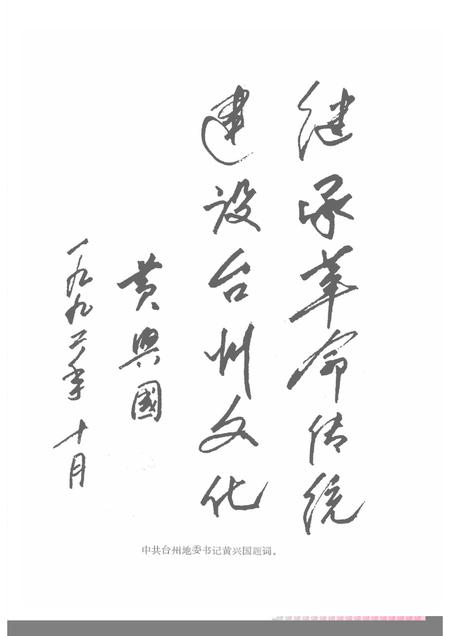 继承革命传统
建设台州文化
黄兴國
一九九二年十月
中共台州地委书记黄兴国题词。